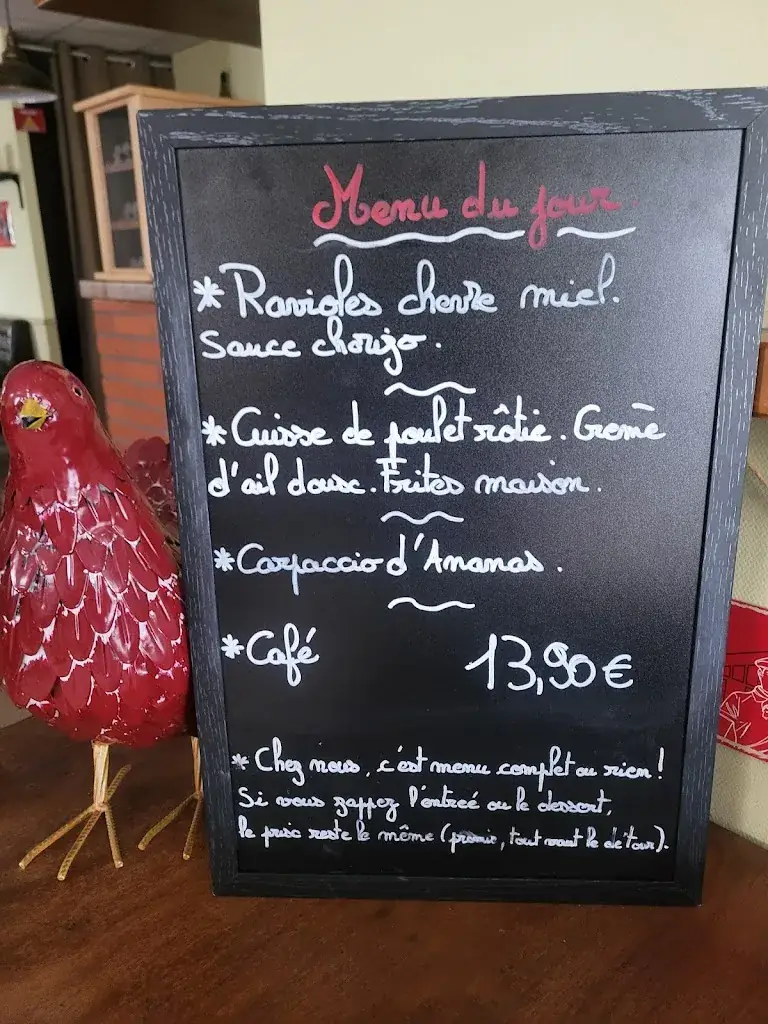 Menu du jour.
* Ravioles chevre miel.
Sauce chorizo.
* Cuisse de poulet rôtie. Creme
d'ail doux. Frites maison.
* Carpaccio d'Ananas.
* Café 13,90€
* Chez nous, c'est menu complet ou rien!
Si vous zappez l'entrée ou le dessert,
le prix reste le même (promis, tout vaut le détour).